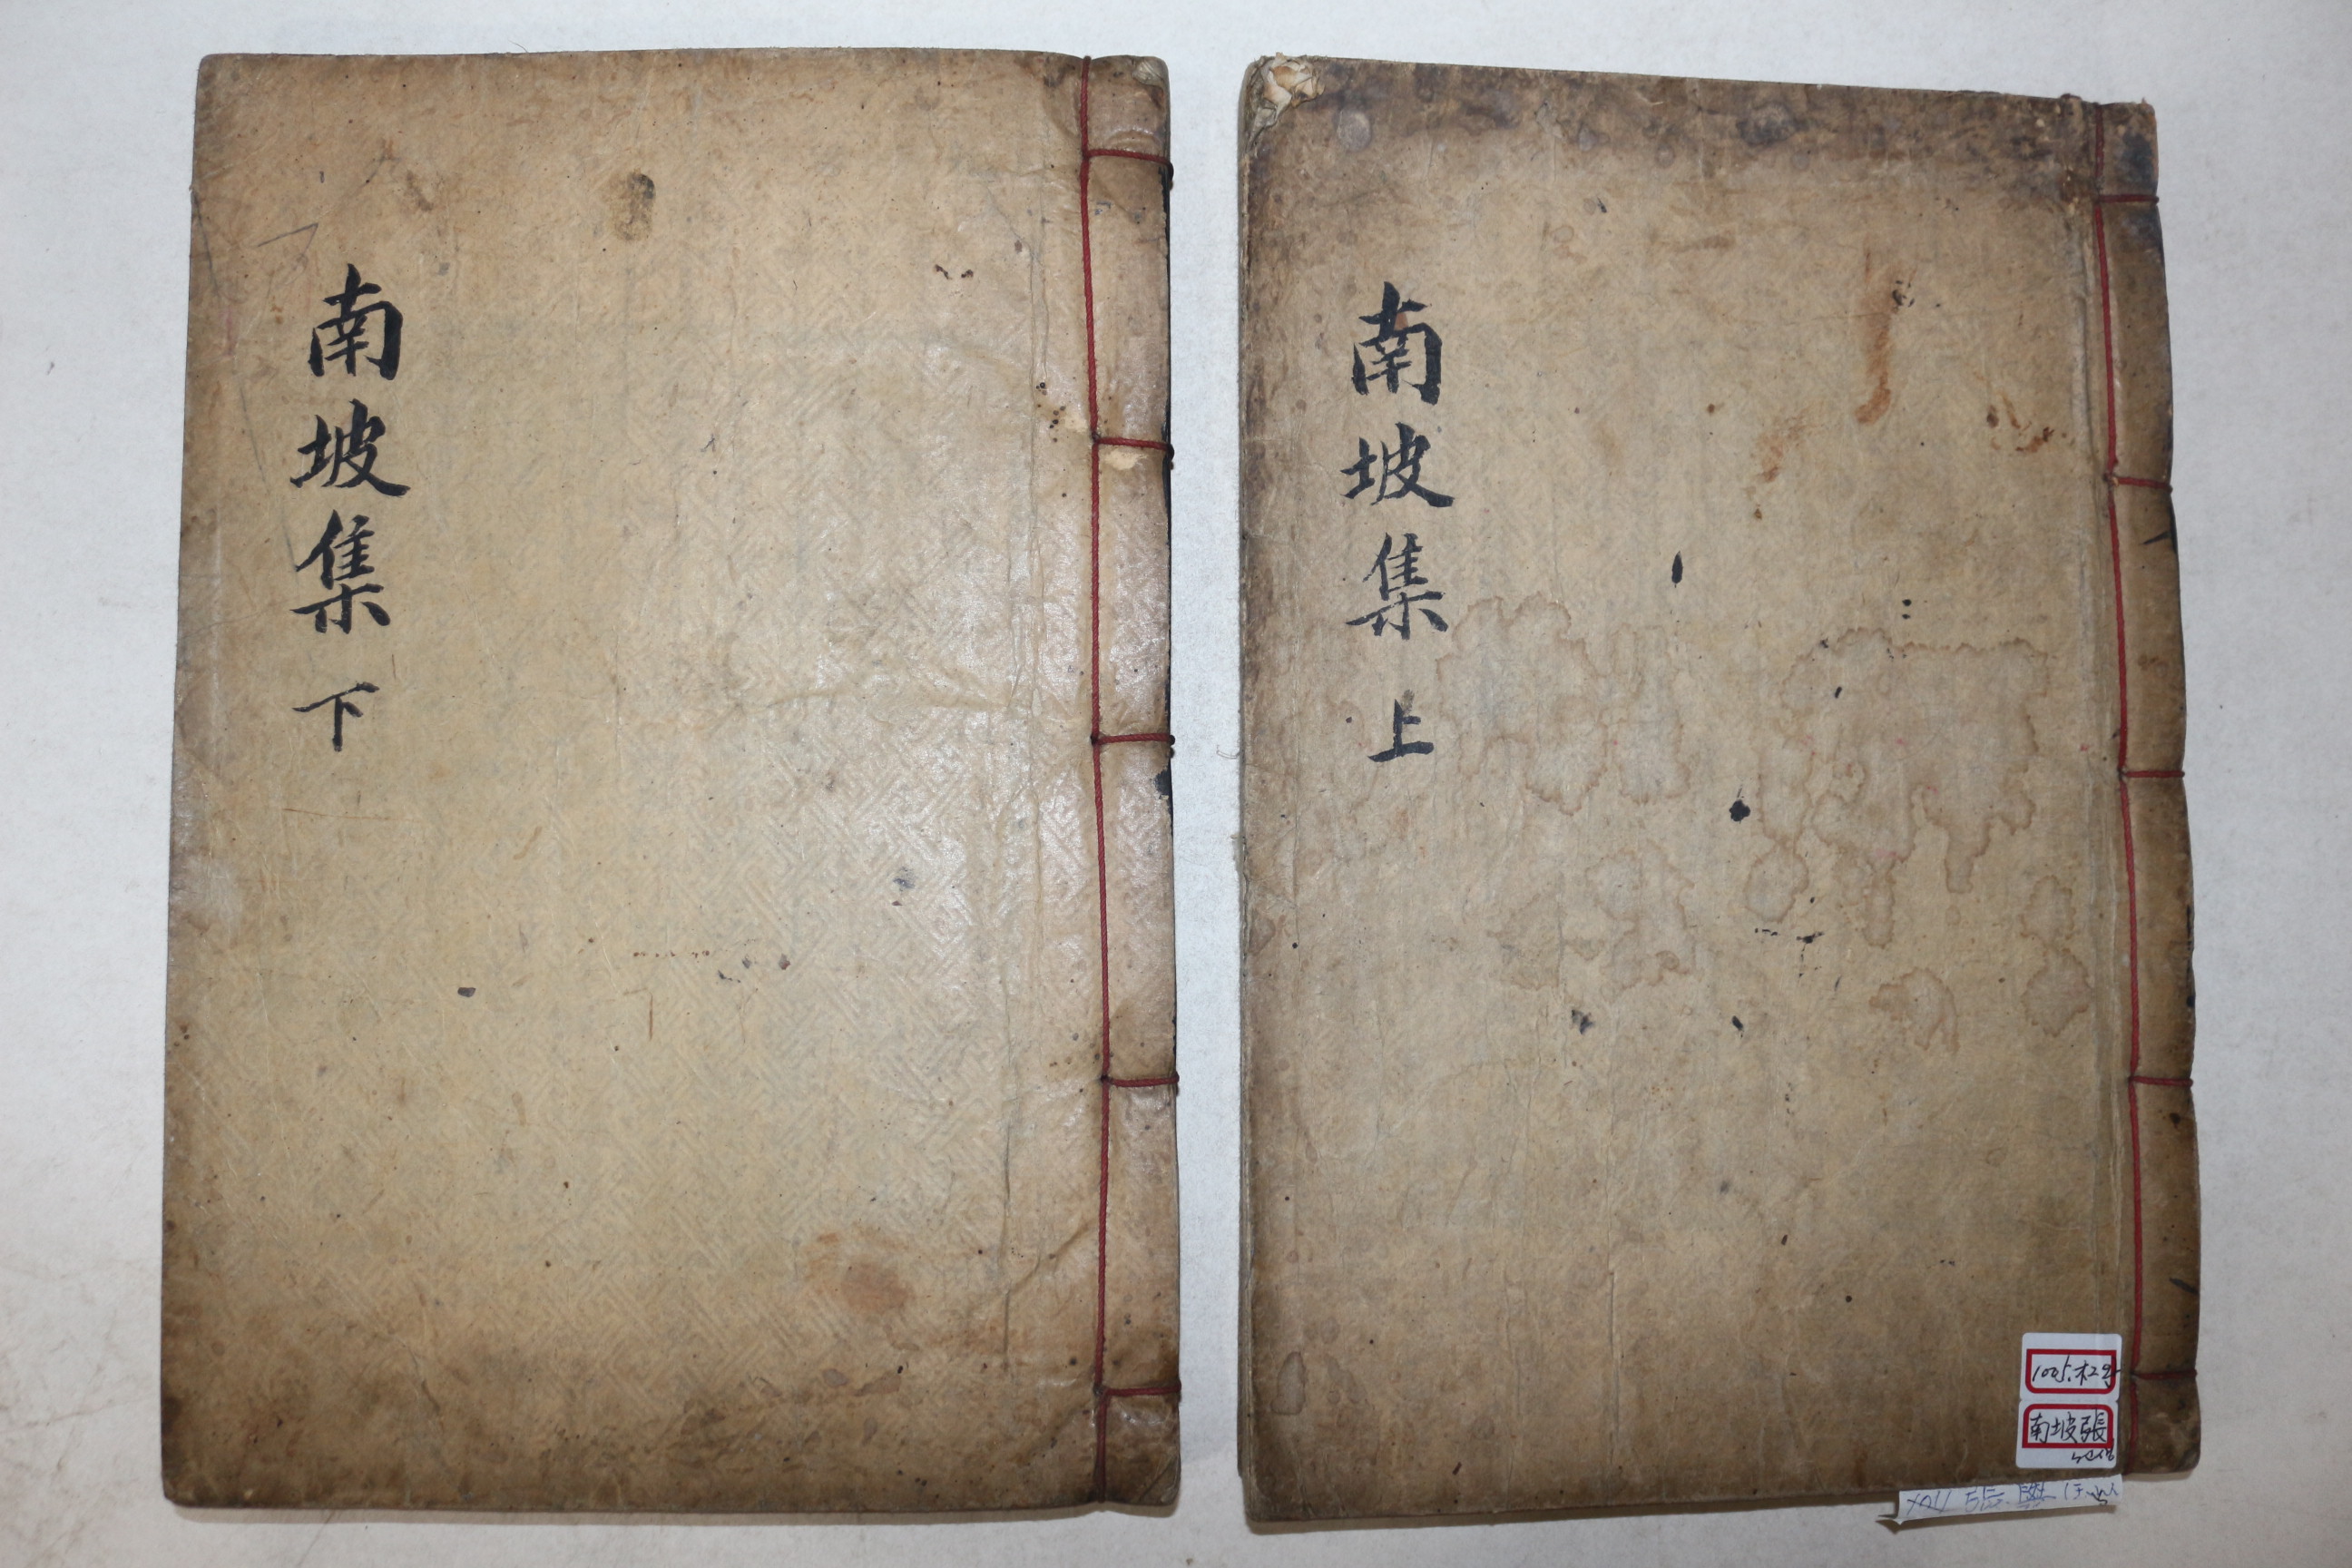 南坡集 上
南坡集 下
南坡張